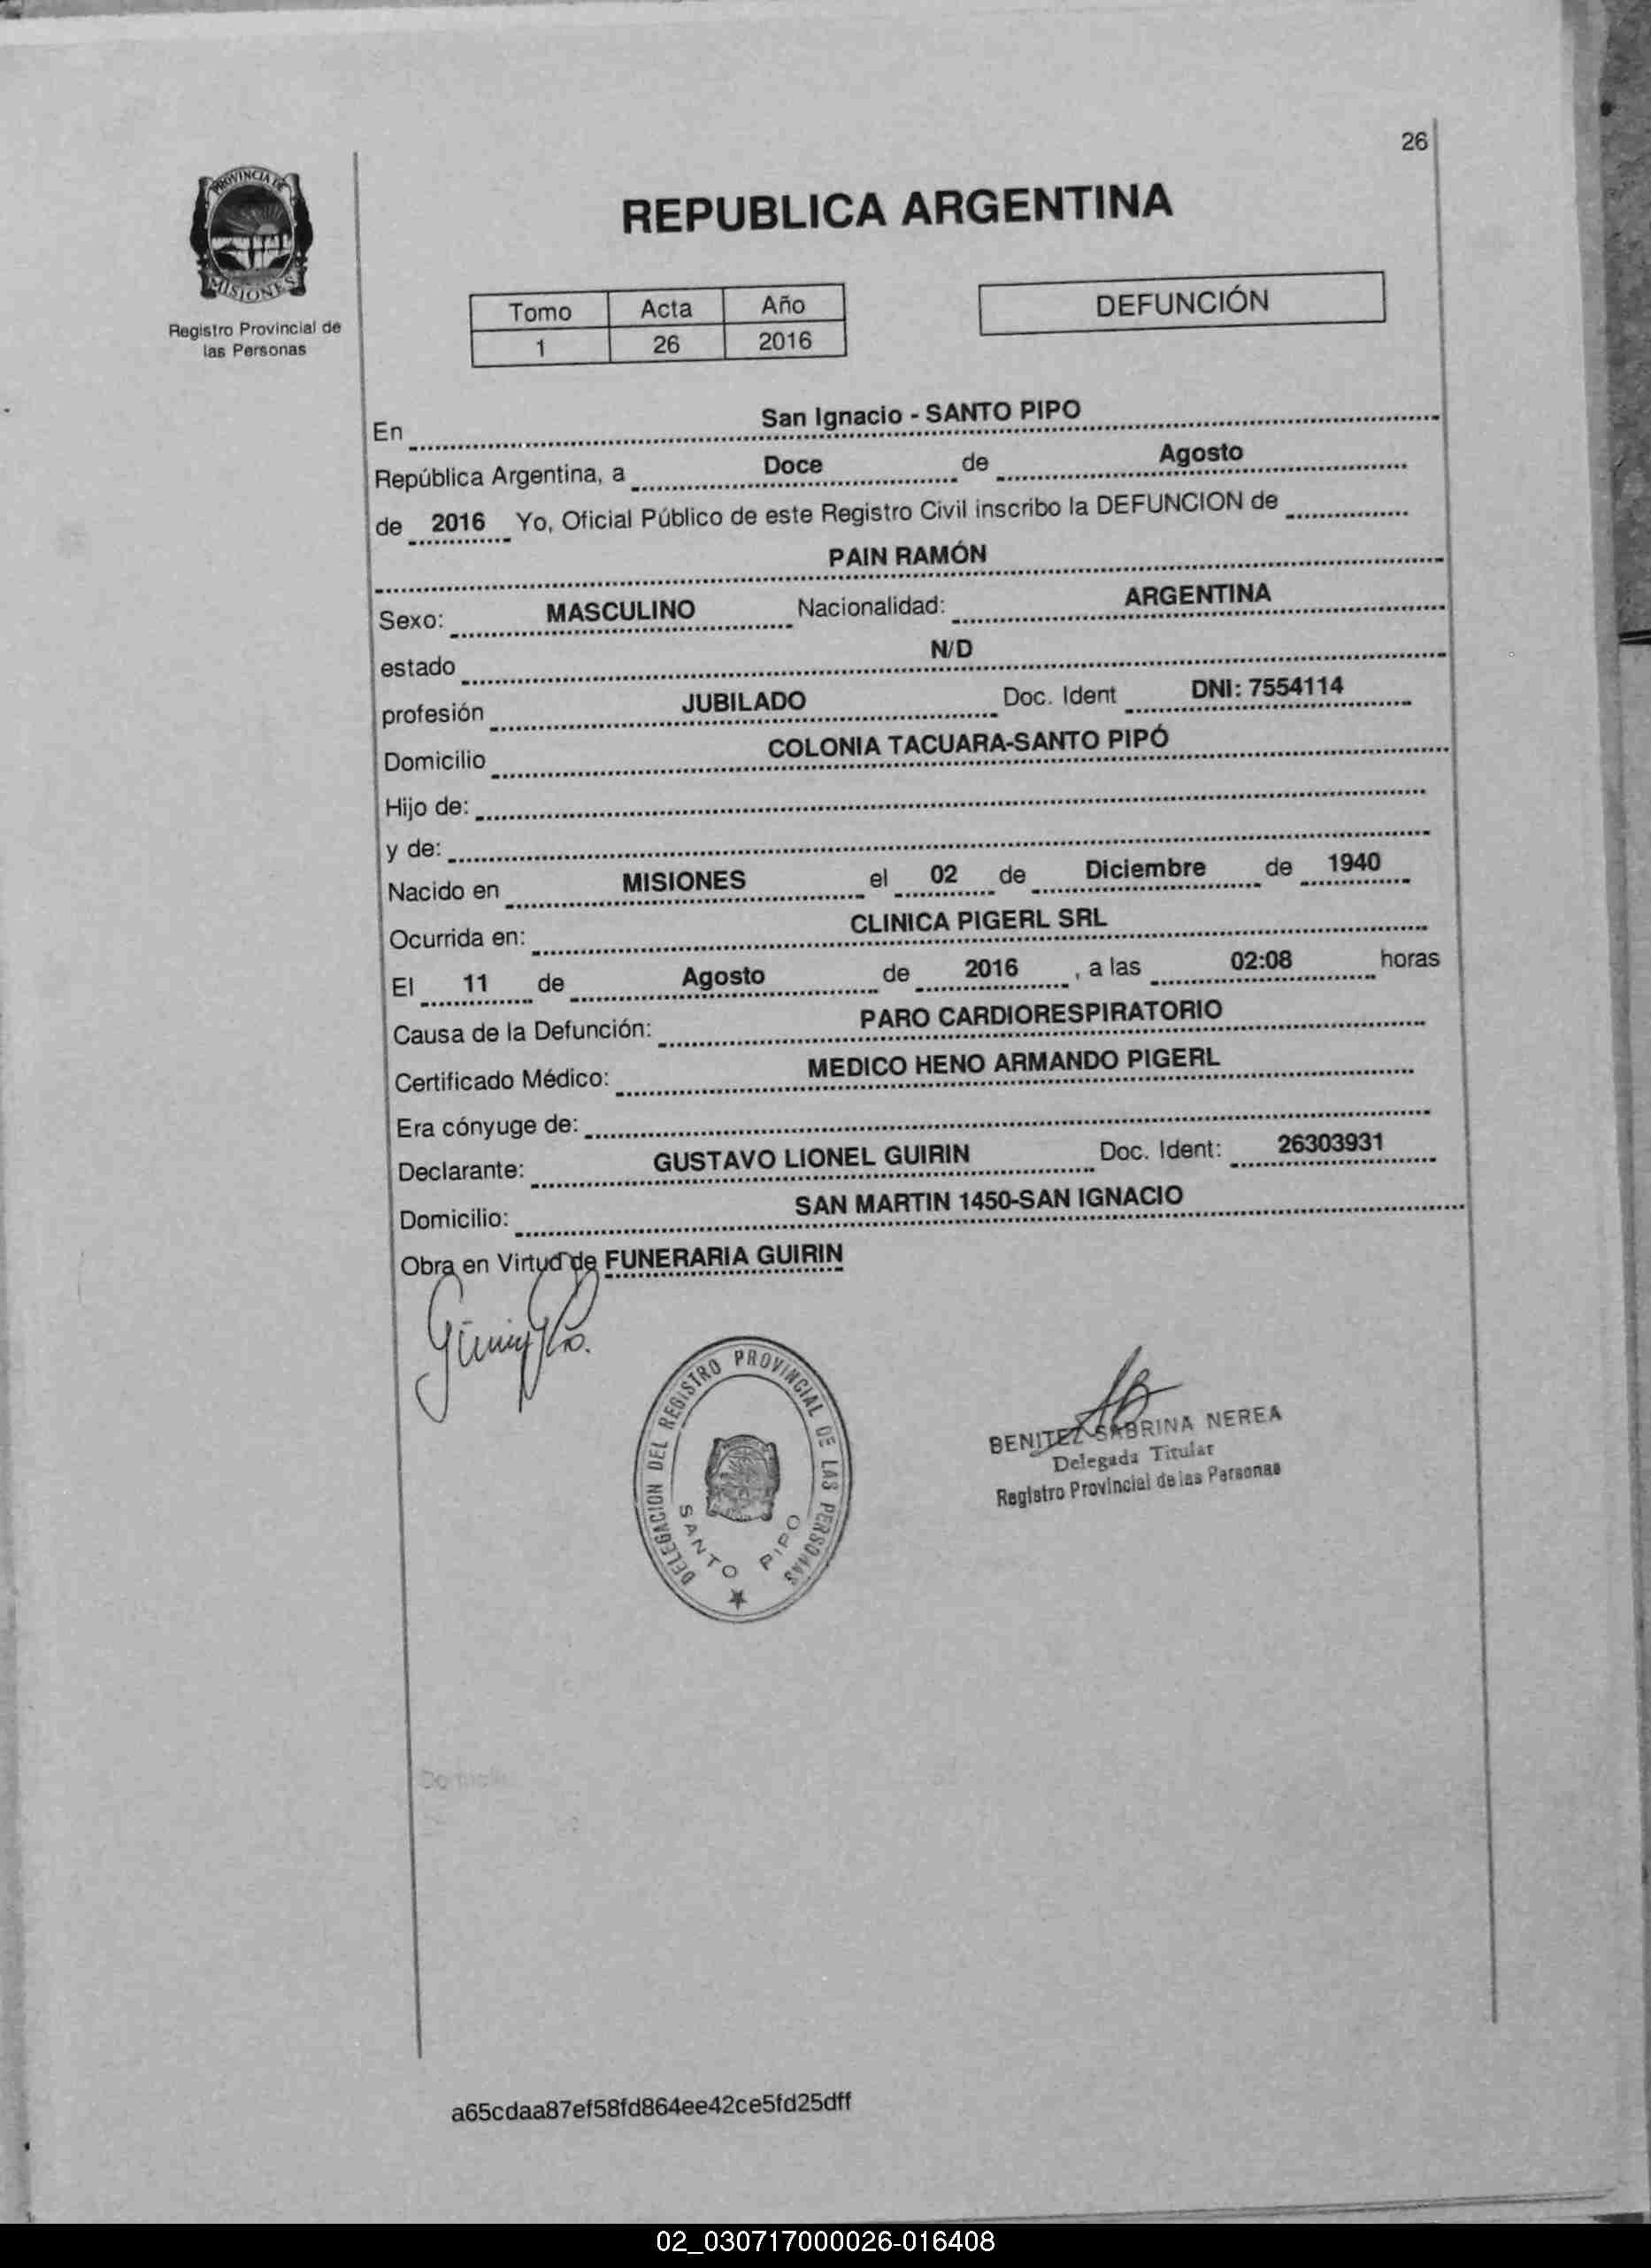 26
PROVINCIA DE
MISIONES
Registro Provincial de
las Personas
REPUBLICA ARGENTINA
Tomo Acta Año
1 26 2016
DEFUNCIÓN
En San Ignacio - SANTO PIPO
República Argentina, a Doce de Agosto
de 2016 Yo, Oficial Público de este Registro Civil inscribo la DEFUNCION de
PAIN RAMÓN
Sexo: MASCULINO Nacionalidad: ARGENTINA
estado N/D
profesión JUBILADO Doc. Ident DNI: 7554114
Domicilio COLONIA TACUARA-SANTO PIPÓ
Hijo de:
y de:
Nacido en MISIONES el 02 de Diciembre de 1940
Ocurrida en: CLINICA PIGERL SRL
El 11 de Agosto de 2016 , a las 02:08 horas
Causa de la Defunción: PARO CARDIORESPIRATORIO
Certificado Médico: MEDICO HENO ARMANDO PIGERL
Era cónyuge de:
Declarante: GUSTAVO LIONEL GUIRIN Doc. Ident: 26303931
Domicilio: SAN MARTIN 1450-SAN IGNACIO
Obra en Virtud de FUNERARIA GUIRIN
DELEGACION DEL REGISTRO PROVINCIAL DE LAS PERSONAS
SANTO PIPO
BENITEZ SABRINA NEREA
Delegada Titular
Registro Provincial de las Personas
a65cdaa87ef58fd864ee42ce5fd25dff
02_030717000026-016408